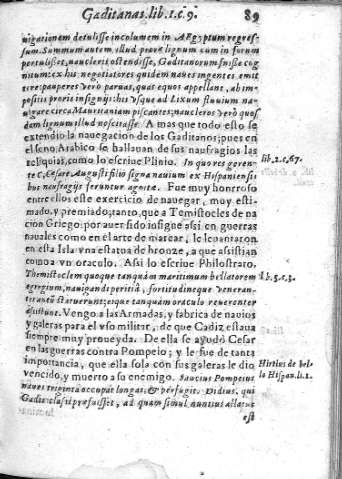 Gaditanas.lib.1.c 9. 89
nauigationem detulisse incolumem in AEgyptum regres-
sum. Summum autem illud prorae lignum cum in forum
pertulisset, naucleris ostendisse, Gaditanorum fuisse cog
nitum: ex his negotiatores quidem naues ingentes emit
tere: pauperes verò paruas, quat equos appellant, ab im-
positis proris insignijs: his vsque ad Lixum fluuium na-
uigare circa Mauritaniam piscantes; naucleros verò quos
dam lignum illud noscitasse. A mas que todo esto se
extendio la nauegacion de los Gaditanos; pues en
el seno Arabico se hallauan de sus naufragios las
reliquias, como lo escriue Plinio. In quo res geren-
te C, Cesare Augusti filio signa nauium ex Hispaniensi
bus naufragijs feruntur agnita. Fue muy honrroso
entre ellos este exercicio de nauegar, muy esti-
mado, y premiado; tanto, que a Temistocles de na
ción Griego: por auer sido insigne assi en guerras
nauales como en el arte de marear, le leuantaron
en esta Isla vna estatua de bronze, a que assistian
como a vn oraculo. Assi lo escriue Philostrato.
Themistoclem quoque tanquàm maritimum bellatorem
egregium, nauigandi peritiâ, fortitudineque veneran-
tur aeneū statuerunt; eique tanquàm oraculo reuerenter
assistunt. Vengo a las Armadas, y fabrica de nauios
y galeras para el vso militar, de que Cadiz estaua
siempre muy proueyda. De ella se ayudó Cesar
en las guerras contra Pompeio; y le fue de tanta
importancia, que ella sola con sus galeras le dio
vencido, y muerto a su enemigo. Saucius Pompeius
naues triginta occupat longas, & profugit. Didius, qui
Gadis classi praefuisset, ad quam simul nuntius allatus
est
lib, 2. c, 67.
li b. 5. c. 3.
Hirtius de bel-
lo Hispan. li. 1.